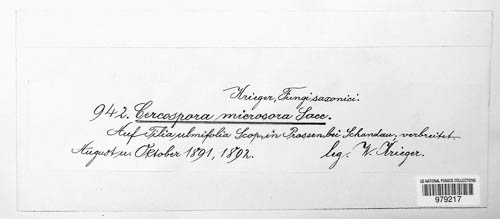 Krieger, Fungi saxonici.
942. Cercospora microsora Sacc.
Auf Tilia ulmifolia Scop. in Prossen bei Schandau, verbreitet
August u. Oktober 1891, 1892. leg. W. Krieger.
US NATIONAL FUNGUS COLLECTIONS
BARCODE
979217